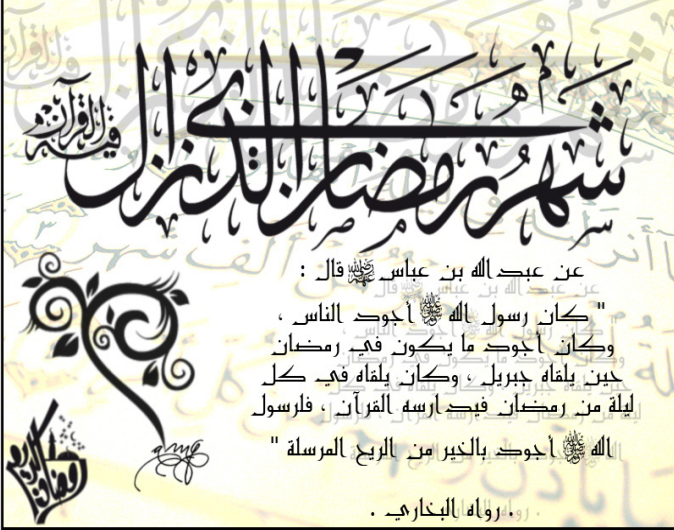 شهر رمضان الذي انزل
فيه القرآن
عن عبد الله بن عباس ﵄ قال :
" كان رسول الله ﷺ أجود الناس ،
وكان أجود ما يكون في رمضان
حين يلقاه جبريل ، وكان يلقاه في كل
ليلة من رمضان فيدارسه القرآن ، فلرسول
الله ﷺ أجود بالخير من الريح المرسلة "
. رواه البخاري .
رمضان كريم